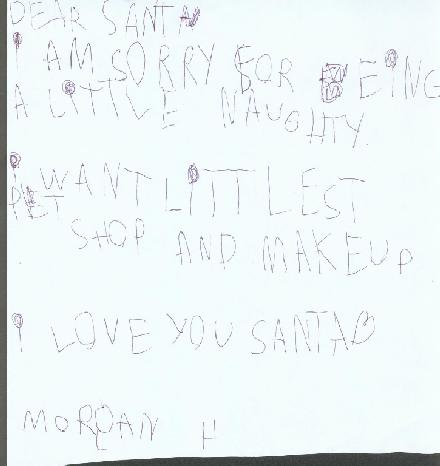 DEAR SANTA
I AM SORRY FOR BEING
A LITTLE NAUGHTY.
I WANT LITTLEST
PET SHOP AND MAKEUP
I LOVE YOU SANTA
MORGAN H